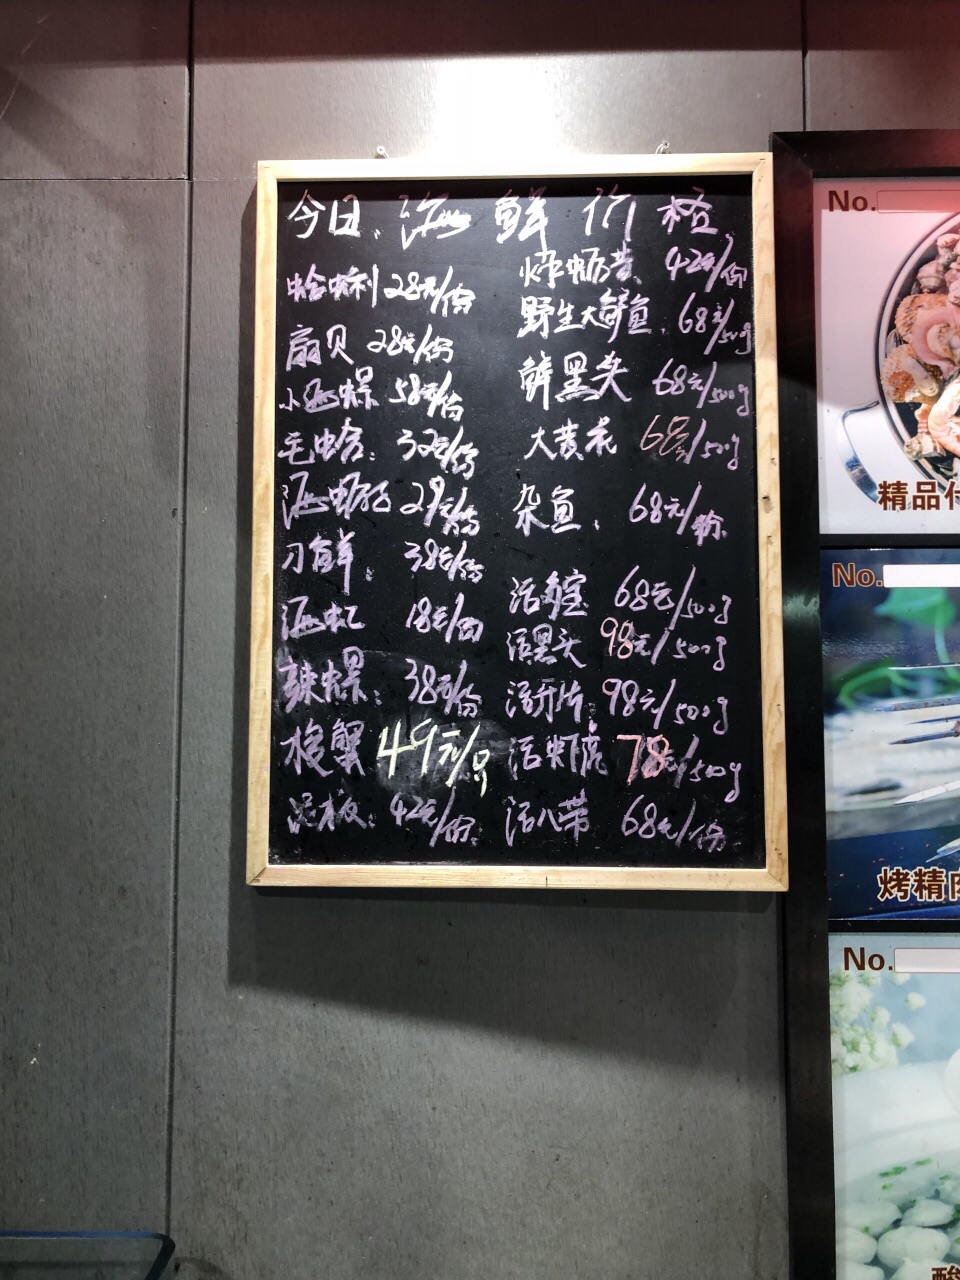 今日海鲜价格
蛤蜊利 28元/份
扇贝 28元/份
小海螺 58元/份
毛蛤: 32元/份
海蛎子 29元/份
刀鲜. 38元/份
海虹 18元/西
辣螺: 38元/份
梭蟹 49元/只
泥板: 42元/份
蛎黄 42元/份
野生大鲈鱼. 68元/500g
鲜黑头 68元/500g
大黄花 68元/500g
杂鱼. 68元/份
活多宝 68元/500g
活黑头 98元/500g
活牙片: 98元/500g
活虾虎 78元/500g
活八带 68元/份
No.
精品
No.
烤精肉
No.